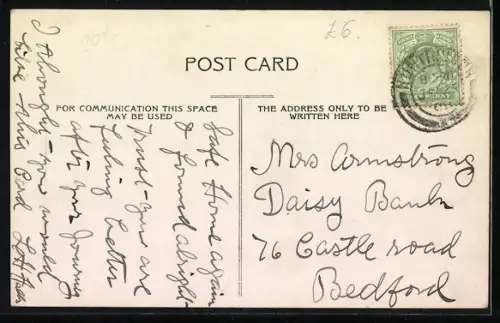 £6.
POST CARD
FOR COMMUNICATION THIS SPACE
MAY BE USED
THE ADDRESS ONLY TO BE
WRITTEN HERE
Safe Home again
& found alright
Trust you are
feeling better
after your Journey
I thought you would
like this Card L H
Mrs Armstrong
Daisy Bank
76 Castle road
Bedford